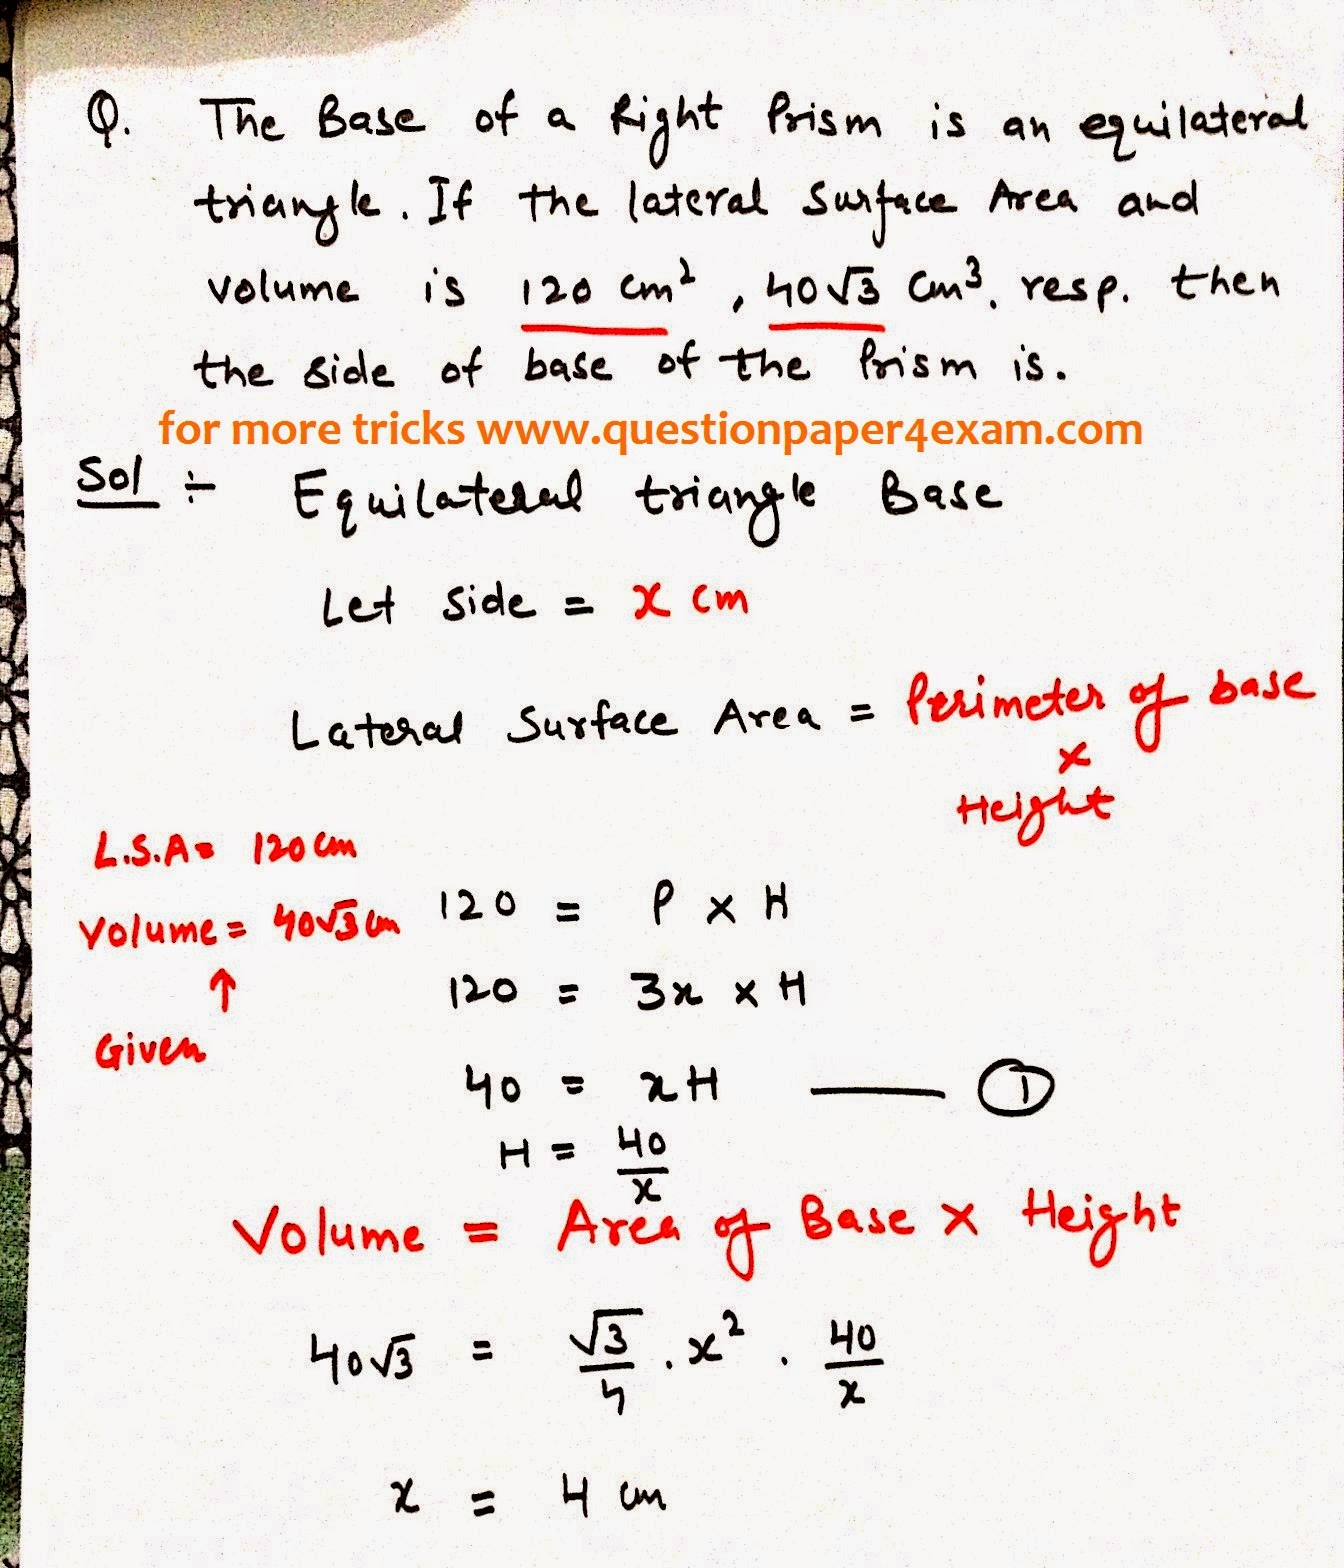 Q. The Base of a Right Prism is an equilateral
triangle. If the lateral Surface Area and
volume is 120 cm², 40√3 cm³. resp. then
the side of base of the Prism is.
for more tricks www.questionpaper4exam.com
Sol ÷ Equilateral triangle Base
Let side = x cm
Lateral Surface Area = Perimeter of base
×
Height
L.S.A = 120 cm
Volume = 40√3 cm
↑
Given
120 = P × H
120 = 3x × H
40 = xH —— ①
H = 40/x
Volume = Area of Base × Height
40√3 = √3/4 . x² . 40/x
x = 4 cm